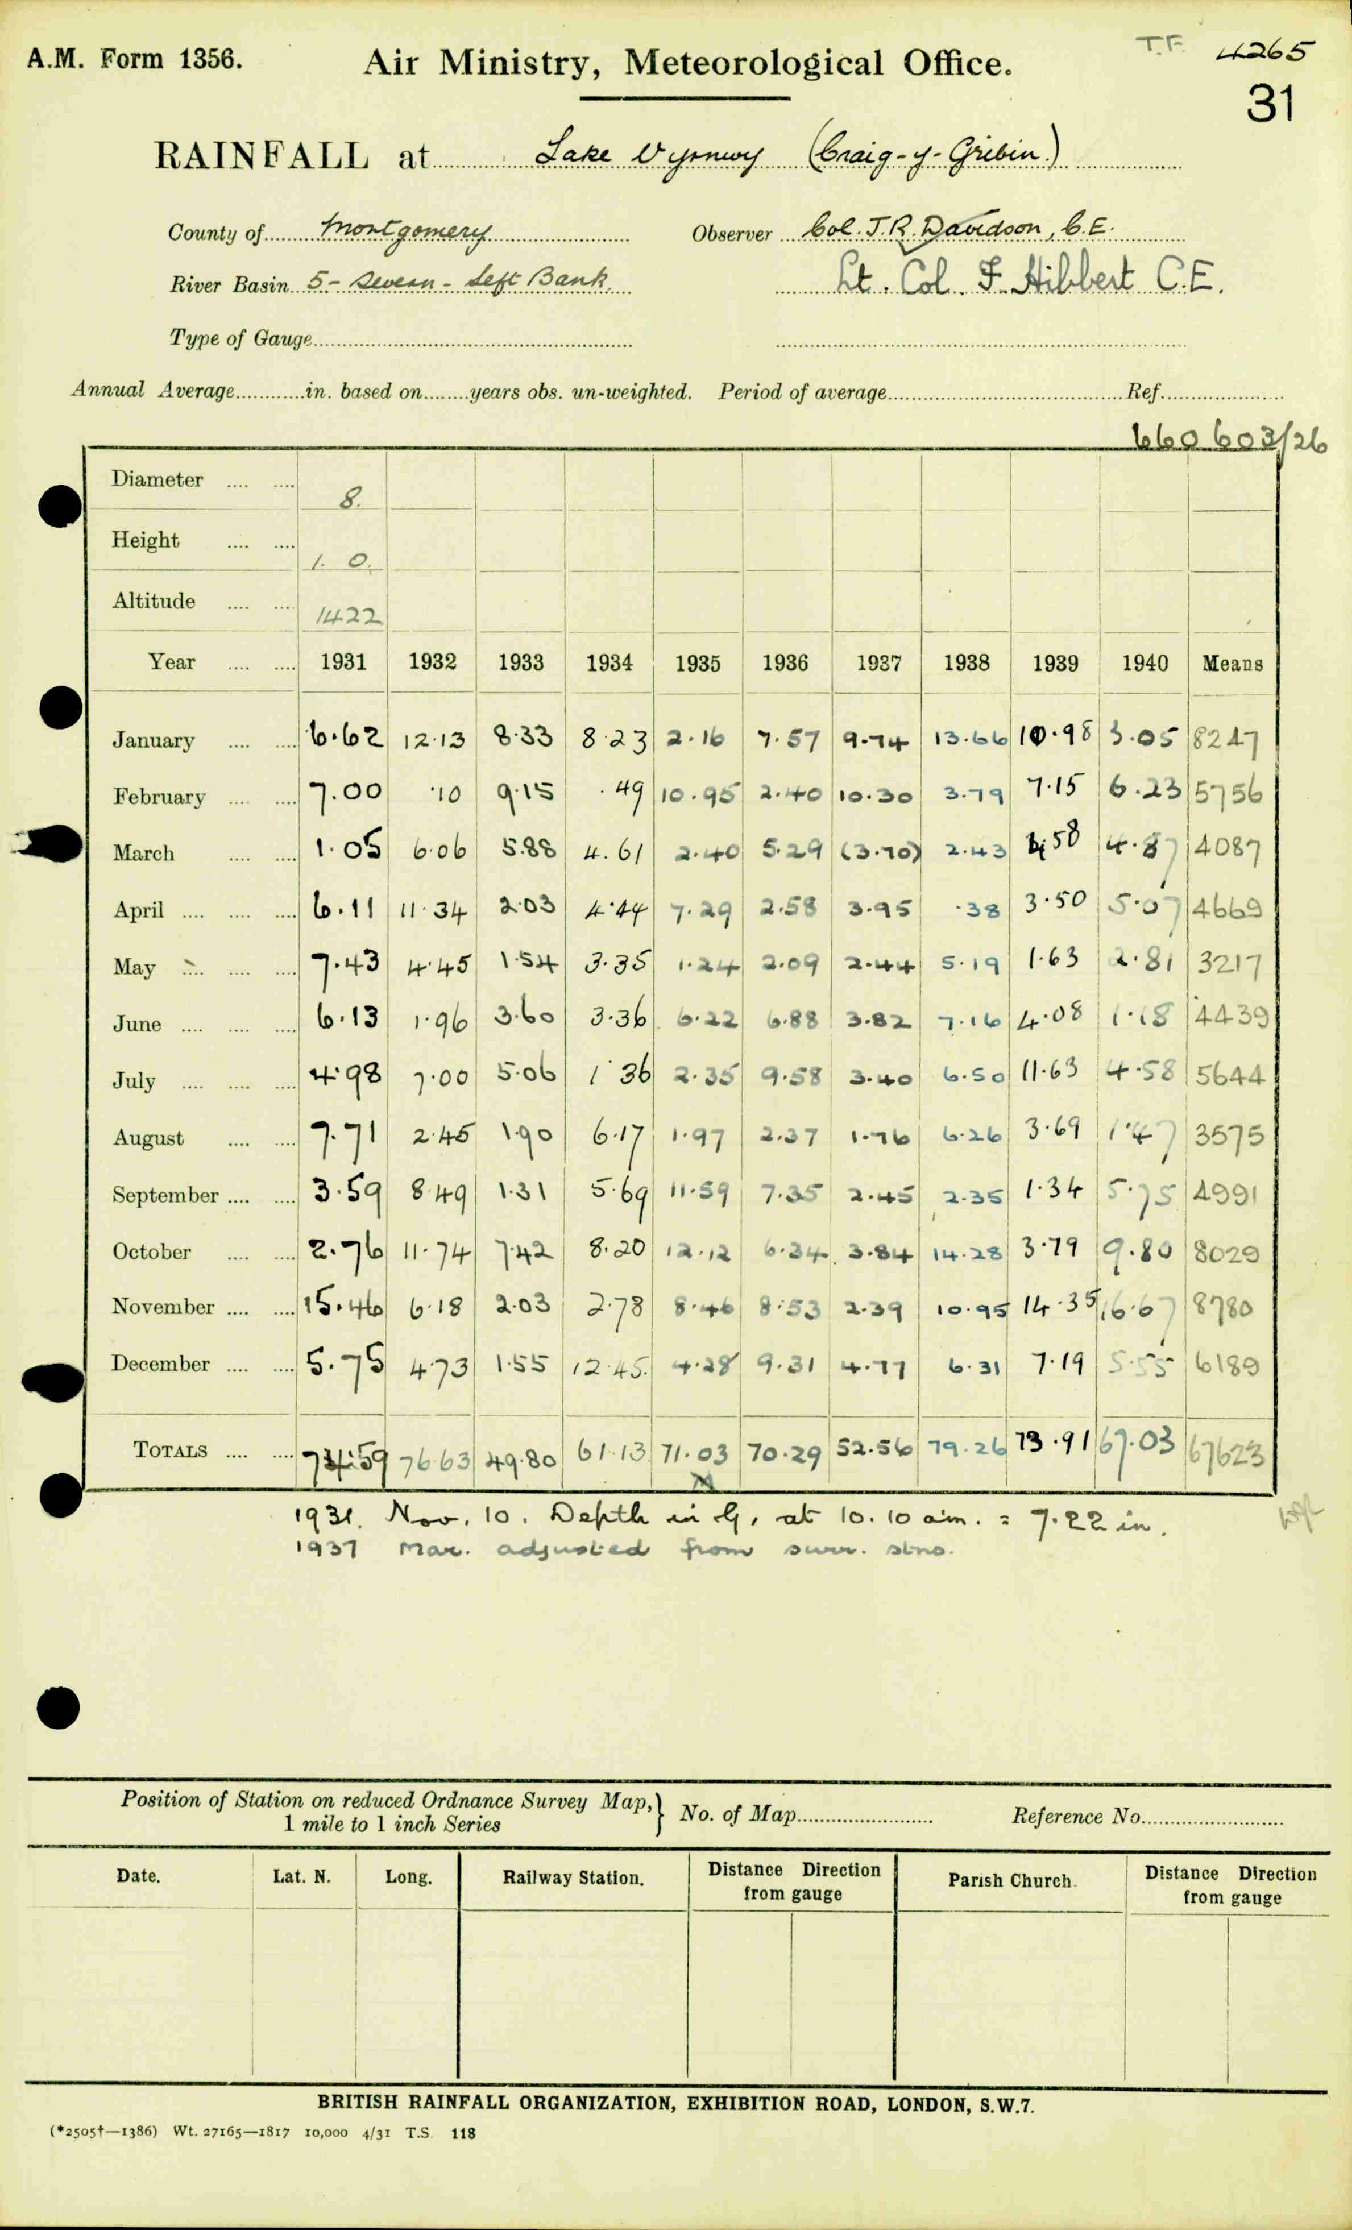 A.M. Form 1356.
Air Ministry, Meteorological Office.
T.F. 4265
31
RAINFALL at Lake Vyrnwy (Craig-y-Gribin.)
County of Montgomery Observer Col. J.R. Davidson, C.E.
River Basin 5 - Severn - Left Bank. Lt. Col. F. Hibbert C.E.
Type of Gauge
Annual Average in. based on years obs. un-weighted. Period of average Ref.
660603/26
Diameter 8.
Height 1. 0.
Altitude 1422
Year 1931 1932 1933 1934 1935 1936 1937 1938 1939 1940 Means
January 6.62 12.13 8.33 8.23 2.16 7.57 9.74 13.66 10.98 3.05 8247
February 7.00 .10 9.15 .49 10.95 2.40 10.30 3.79 7.15 6.23 5756
March 1.05 6.06 5.88 4.61 2.40 5.29 (3.70) 2.43 4.58 4.87 4087
April 6.11 11.34 2.03 4.44 7.29 2.58 3.95 .38 3.50 5.07 4669
May 7.43 4.45 1.54 3.35 1.24 2.09 2.44 5.19 1.63 2.81 3217
June 6.13 1.96 3.60 3.36 6.22 6.88 3.82 7.16 4.08 1.18 4439
July 4.98 7.00 5.06 1.36 2.35 9.58 3.40 6.50 11.63 4.58 5644
August 7.71 2.45 1.90 6.17 1.97 2.37 1.76 6.26 3.69 1.47 3575
September 3.59 8.49 1.31 5.69 11.59 7.35 2.45 2.35 1.34 5.75 4991
October 2.76 11.74 7.42 8.20 12.12 6.34 3.84 14.28 3.79 9.80 8029
November 15.46 6.18 2.03 2.78 8.46 8.53 2.39 10.95 14.35 16.67 8780
December 5.75 4.73 1.55 12.45 4.28 9.31 4.77 6.31 7.19 5.55 6189
TOTALS 74.59 76.63 49.80 61.13 71.03 70.29 52.56 79.26 73.91 67.03 67623
1931. Nov. 10. Depth in G. at 10.10 a.m. = 7.22 in.
1937 Mar. adjusted from surr. stns.
Position of Station on reduced Ordnance Survey Map, No. of Map Reference No.
1 mile to 1 inch Series
Date. Lat. N. Long. Railway Station. Distance Direction from gauge Parish Church. Distance Direction from gauge
BRITISH RAINFALL ORGANIZATION, EXHIBITION ROAD, LONDON, S.W.7.
(*2505†—1386) Wt. 27165—1817 10,000 4/31 T.S. 118